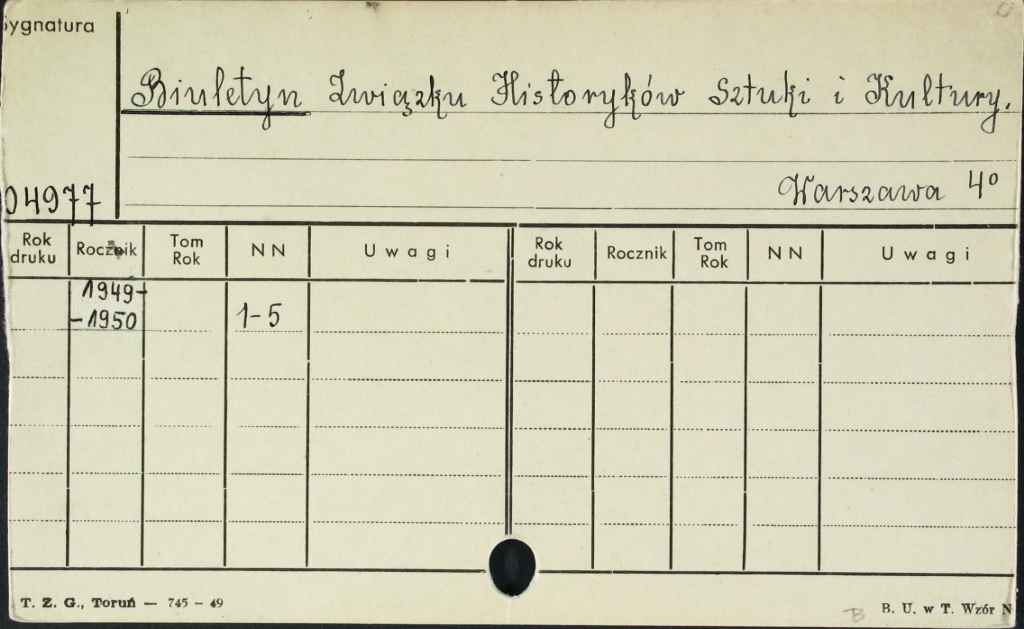 Sygnatura
Biuletyn Związku Historyków Sztuki i Kultury.
Warszawa 4°
04977
Rok druku Rocznik Tom Rok NN Uwagi Rok druku Rocznik Tom Rok NN Uwagi
1949-
-1950 1-5
T. Z. G., Toruń — 745 - 49
B
B. U. w T. Wzór N